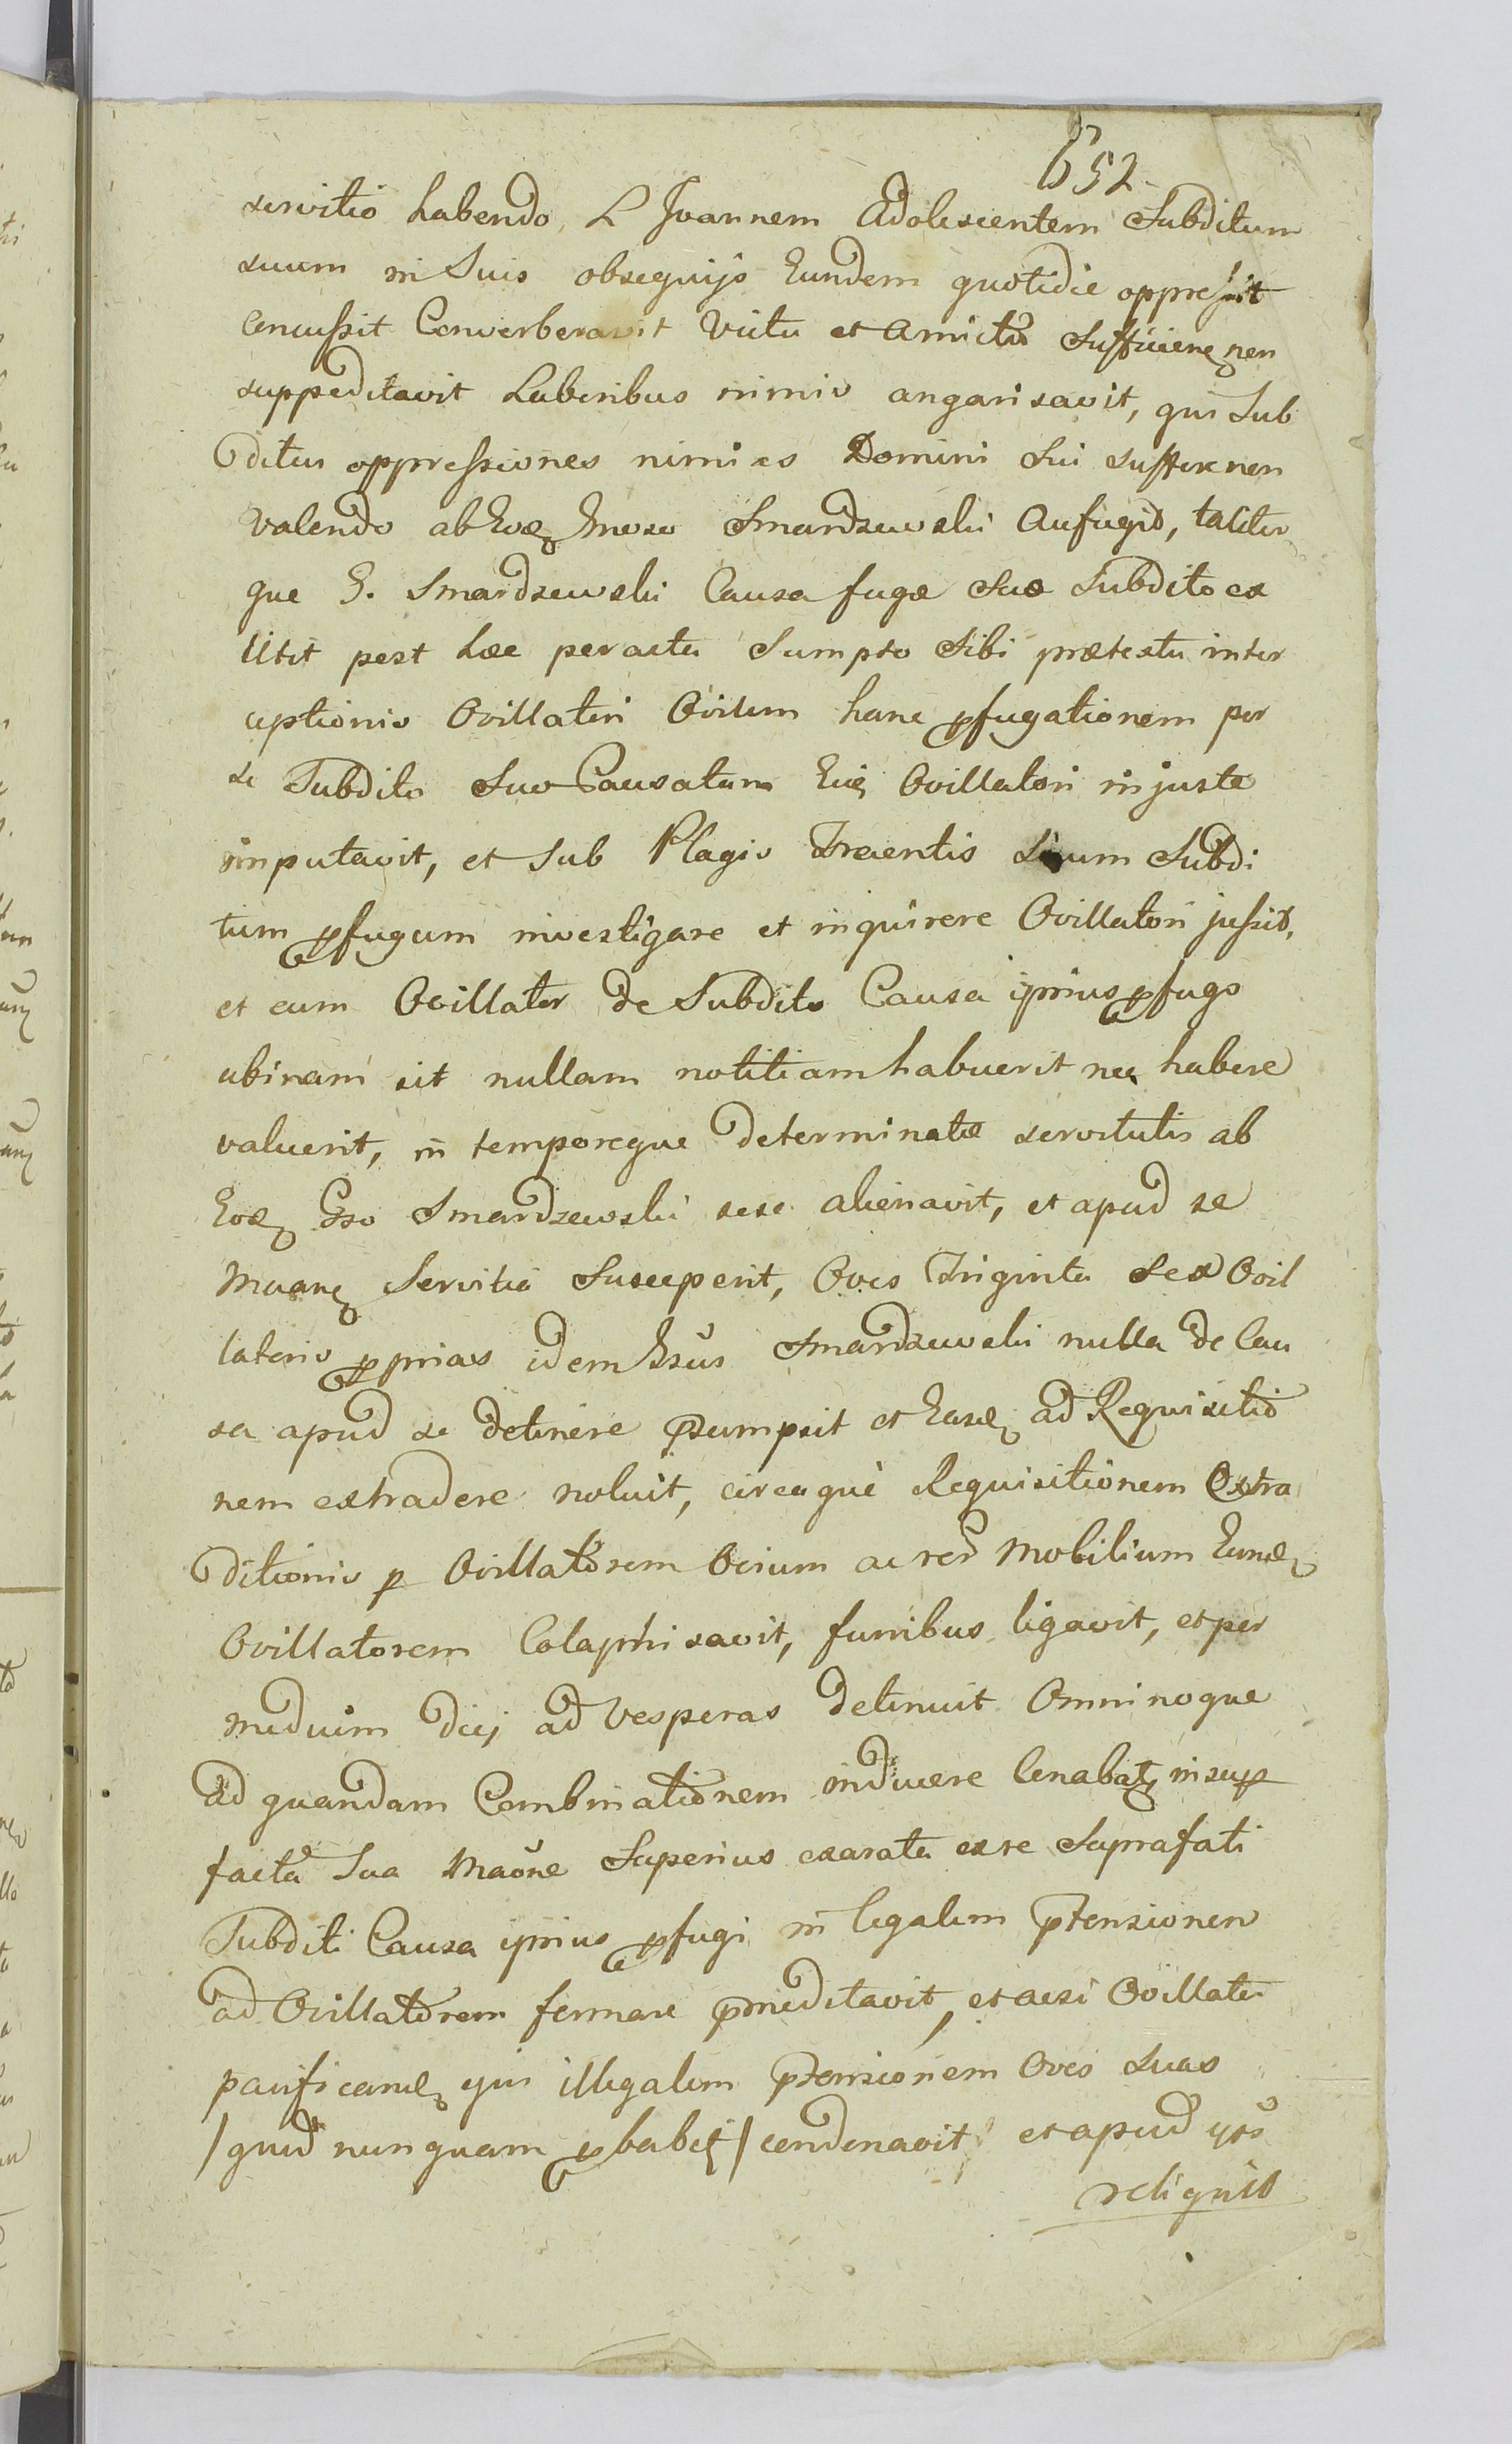 652
servitio habendo L Joannem Adolescentem Subditum
suum in Suis obsequijs Eundem quotidie oppressit
concussit Converberavit Victu et amictu Sufficien non
suppeditavit Laboribus nimis angarisavit, qui Sub
ditus oppressiones nimias Domini Sui sufferre non
valendo ab Eod Gnoso Smardzewski Aufugit, taliter
que G. Smardzewski Causa fugæ Suæ Subdito ex
titit post hæc peracta Sumpto Sibi prætextu inter
ceptionis Ovillatori Ovium hanc pfugationem per
se Subdito Suo Causatam Eid Ovillatori injuste
imputavit, et sub Plagis Trecentis suum Subdi
tum pfugum investigare et inquirere Ovillatori jussit,
et cum Ovillator de Subdito Causa ipsius pfugo
ubinam sit nullam notitiam habuerit nec habere
valuerit, in temporeque determinatæ servitutis ab
Eod Gso Smardzewski sese alienavit, et apud se
Servitia Susceperit, Oves Triginta Sex Ovil
latoris pprias idem Gsus Smardzewski nulla de Cau
sa apud se detinere psumpsit et Easd ad Requisitio
nem extradere noluit, circaque Requisitionem Extra
ditionis p Ovillatorem Ovium ac rer Mobilium Eund
Ovillatorem Colaphisavit, funibus ligavit, et per
medium diej ad Vesperas detinuit Omninoque
ad quandam Combinationem inducere Conabat insup
facta Sua Maone Superius exarata ex re Suprafati
Subditi Causa ipsius pfugi in legalem ptensionem
ad Ovillatorem formare pmeditavit, et acsi Ovillator
pacificand ejus illegalem ptensionem Oves Suas
/quod nunquam pbabit/ condonavit et apud ips
reliquit